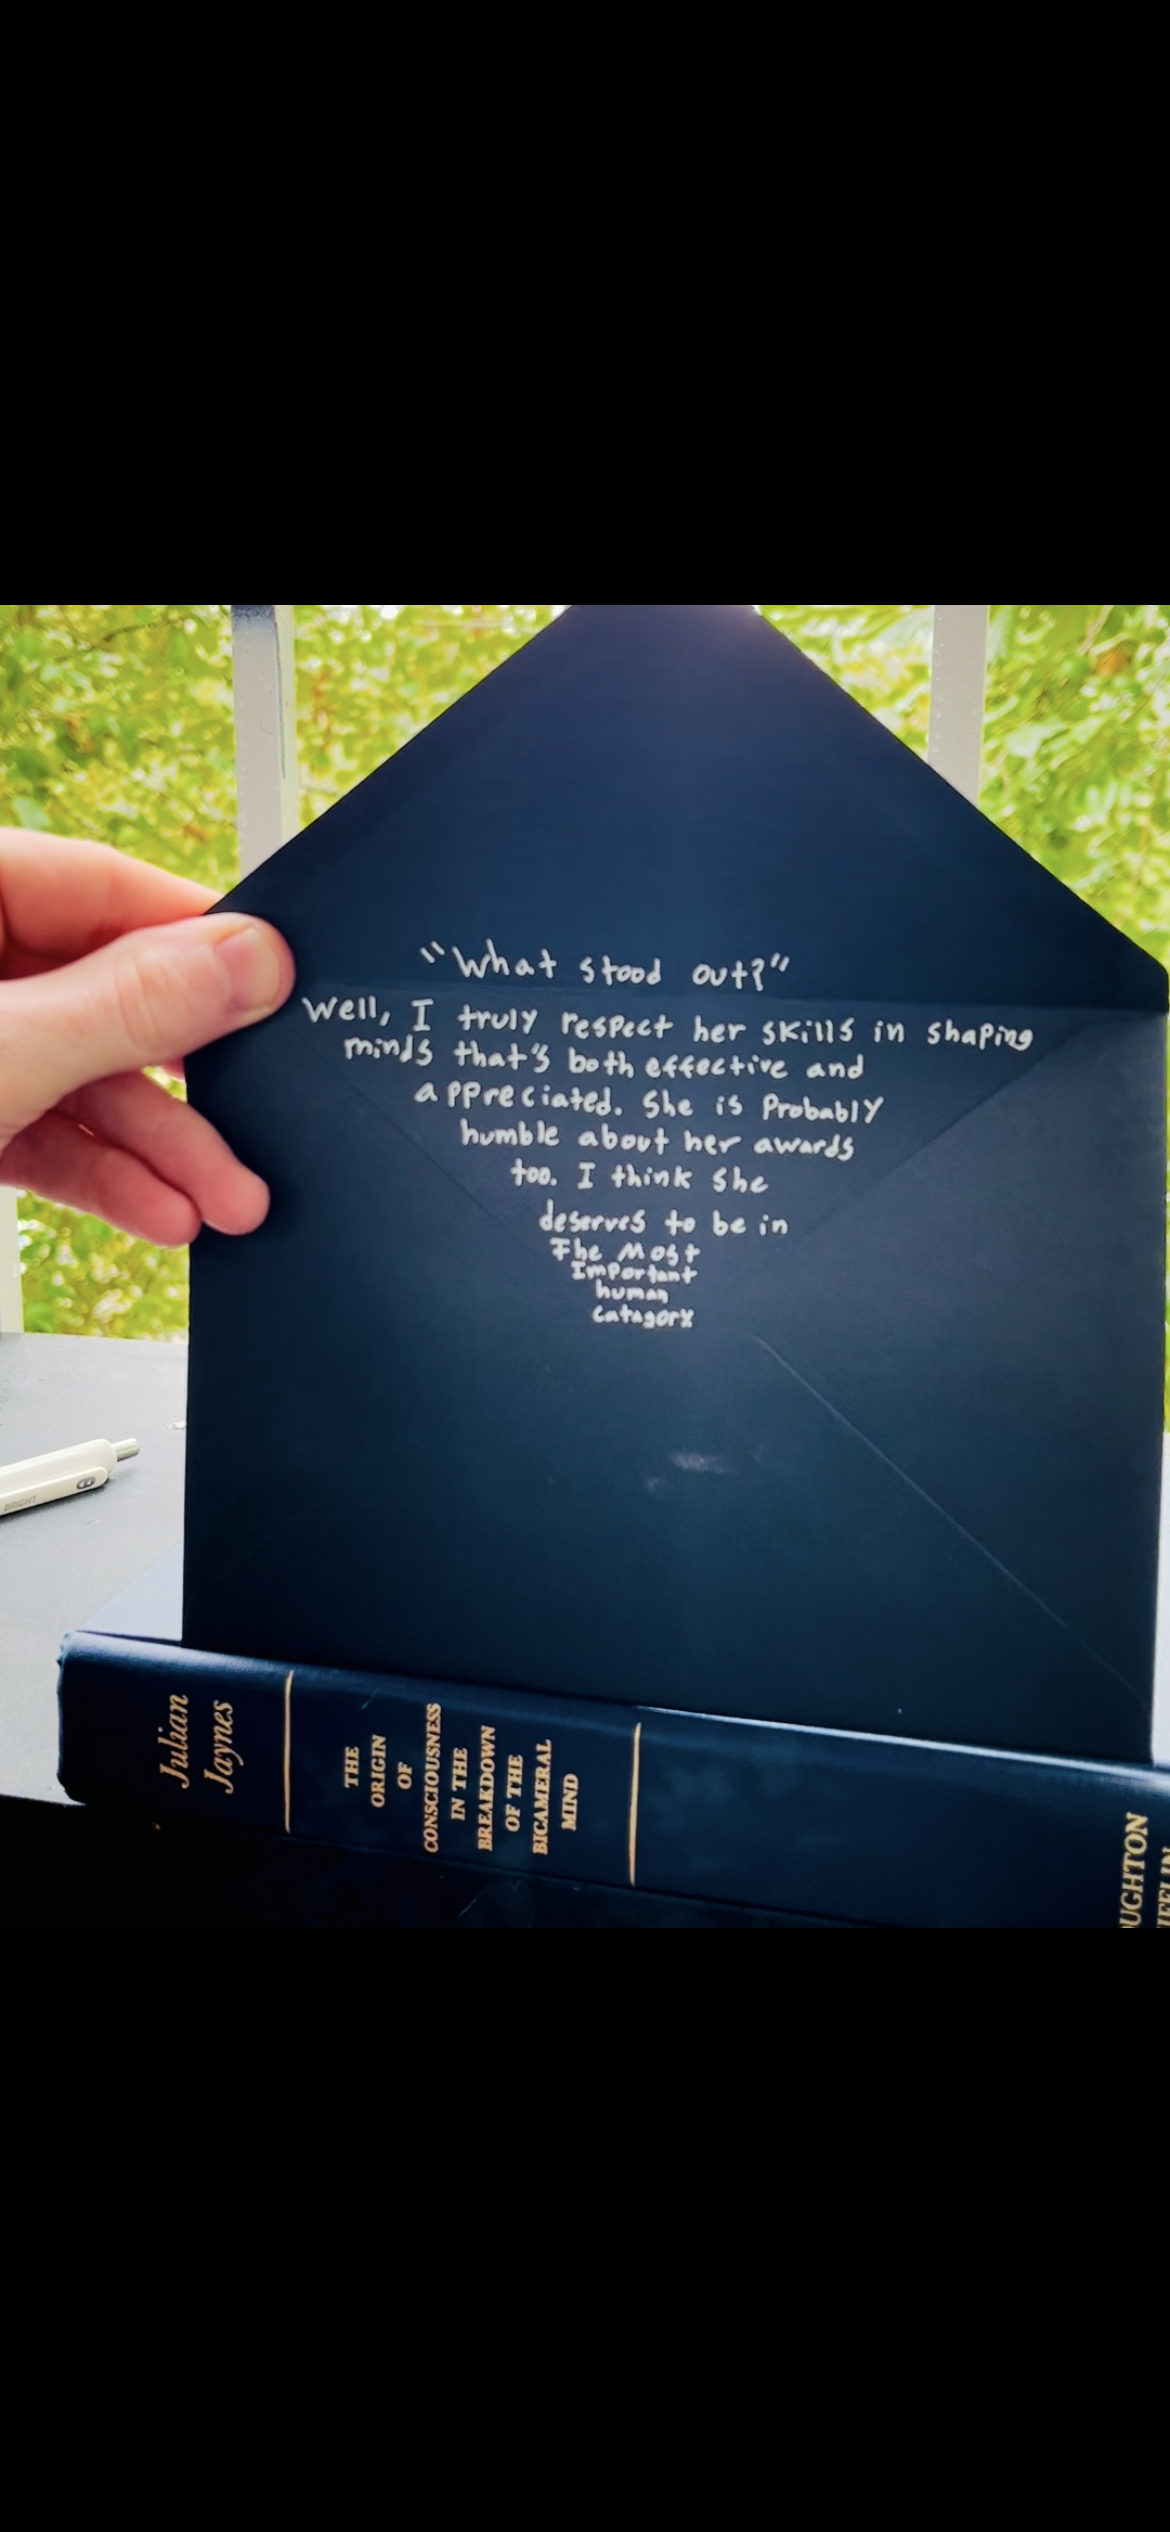 "What stood out?"
Well, I truly respect her skills in shaping
minds that's both effective and
appreciated. She is Probably
humble about her awards
too. I think she
deserves to be in
The Most
Important
human
catagory
BRIGHT
Julian
Jaynes
THE
ORIGIN
OF
CONSCIOUSNESS
IN THE
BREAKDOWN
OF THE
BICAMERAL
MIND
OUGHTON
IFFLIN